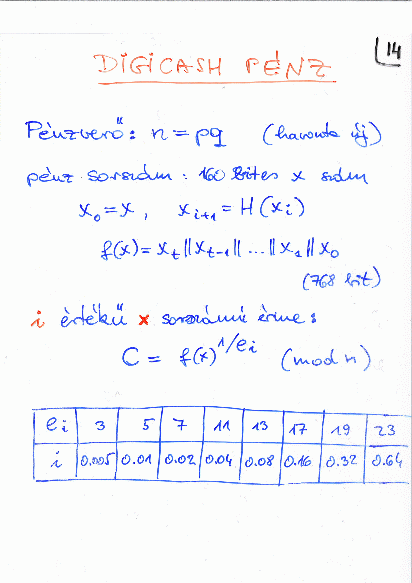 14
DIGICASH PÉNZ
Pénzverő: n = pq (havonta új)
pénz sorszám: 160 bites x szám
x₀ = x, xᵢ₊₁ = H(xᵢ)
f(x) = xₜ || xₜ₋₁ || ... || x₁ || x₀
(768 bit)
i értékű x sorszámú érme:
C = f(x)^1/eᵢ (mod n)
eᵢ 3 5 7 11 13 17 19 23
i 0.005 0.01 0.02 0.04 0.08 0.16 0.32 0.64